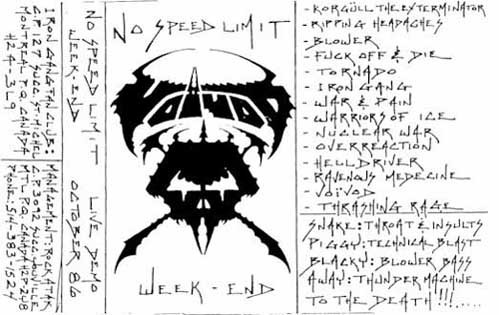 IRON GANG FAN CLUB:
C.P. 127 SUCC. ST-MICHEL
MONTREAL P.Q. CANADA
H2A-3L9
MANAGEMENT: ROCK ATAK
C.P. 3092 SUCC. YOUVILLE
MTL P.Q. CANADA H2P-2Y8
PHONE: 514-383-1524
NO SPEED LIMIT
WEEK-END
LIVE DEMO
OCTOBER 86
NO SPEED LIMIT
WEEK-END
- KORGÜLL THE EXTERMINATOR
- RIPPING HEADACHES
- BLOWER
- FUCK OFF & DIE
- TORNADO
- IRON GANG
- WAR & PAIN
- WARRIORS OF ICE
- NUCLEAR WAR
- OVERREACTION
- HELLDRIVER
- RAVENOUS MEDECINE
- VOÏVOD
- THRASHING RAGE
SNAKE: THROAT & INSULTS
PIGGY: TECHNICAL BLAST
BLACKY: BLOWER BASS
AWAY: THUNDER MACHINE
TO THE DEATH!!!....